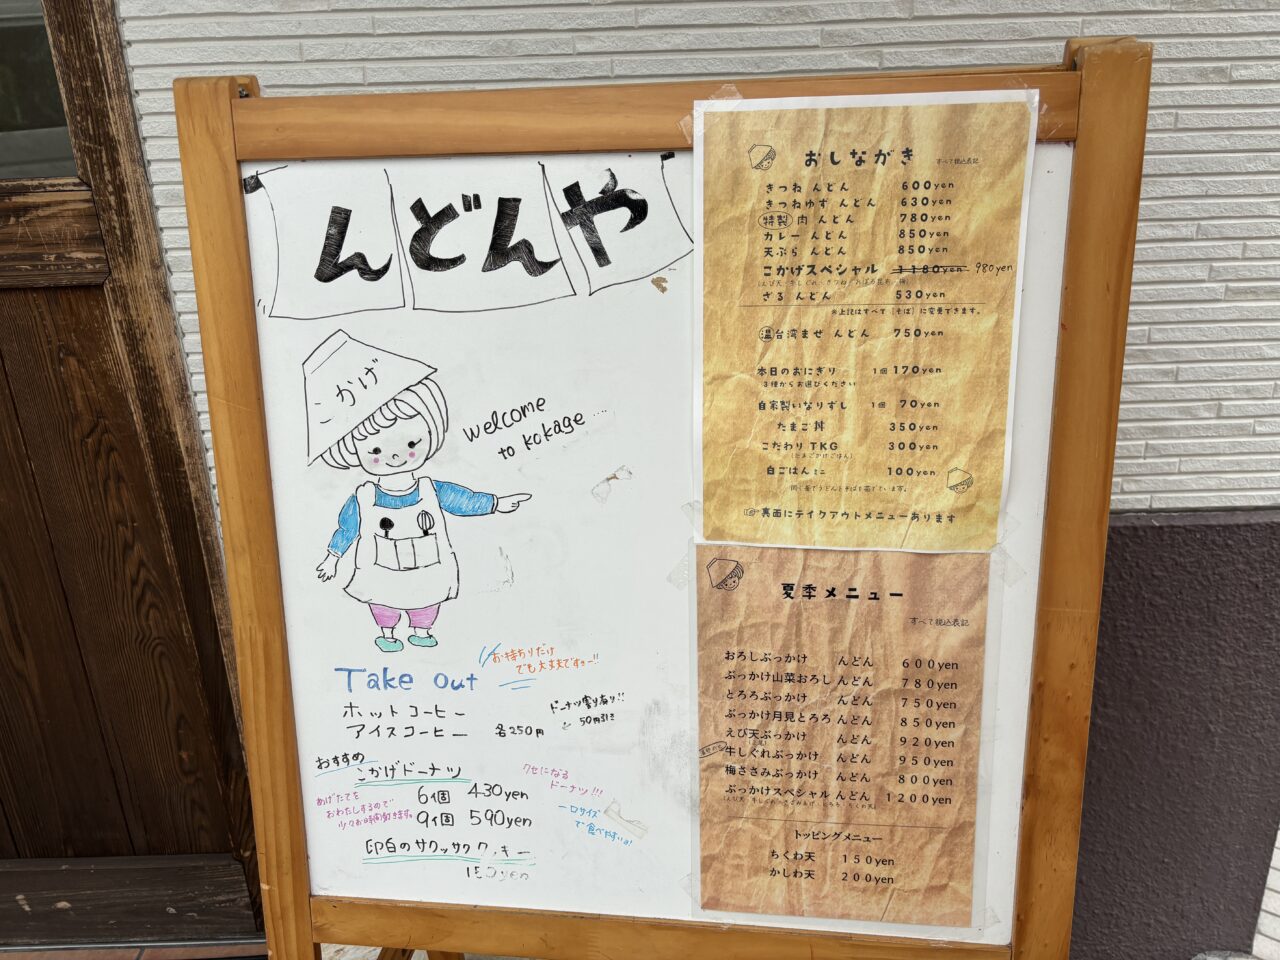 んどんや
かげ
welcome
to kokage....
Take out
お持ちりだけ
でも大丈夫ですョー!!
ホットコーヒー
アイスコーヒー 各250円
ドーナツ割りあり!!
50円引き
おすすめ
こかげドーナツ
6個 430yen
9個 590yen
あげたてを
おわたしするので
少々お時間頂きます。
クセになる
ドーナツ!!!
一口サイズ
で食べやすいョ!
卵白のサクッサククッキー
150yen
おしながき すべて税込表記
きつね んどん 600yen
きつねゆず んどん 630yen
特製 肉 んどん 780yen
カレー んどん 850yen
天ぷら んどん 850yen
こかげスペシャル 1180yen 980yen
ざる んどん 530yen
※上記はすべて[そば]に変更できます。
温 台湾まぜ んどん 750yen
本日のおにぎり 1個 170yen
3種からお選びください
自家製いなりずし 1個 70yen
たまご丼 350yen
こだわりTKG 300yen
(たまごかけごはん)
白ごはん ミニ 100yen
同じ釜でうどんとそばを茹でています。
裏面にテイクアウトメニューあります
夏季メニュー
すべて税込表記
おろしぶっかけ んどん 600yen
ぶっかけ山菜おろし んどん 780yen
とろろぶっかけ んどん 750yen
ぶっかけ月見とろろ んどん 850yen
えび天ぶっかけ んどん 920yen
牛しぐれぶっかけ んどん 950yen
梅ささみぶっかけ んどん 800yen
ぶっかけスペシャル んどん 1200yen
トッピングメニュー
ちくわ天 150yen
かしわ天 200yen